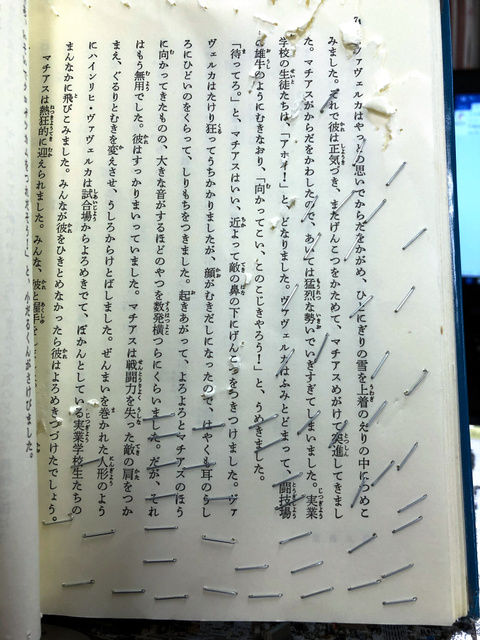 ヴァヴェルカはやっとの思いでからだをかがめ、ひとにぎりの雪を上着のえりの中につめこ
みました。それで彼は正気づき、またげんこつをかためて、マチアスめがけて突進してきまし
た。マチアスがからだをかわしたので、あいては猛烈な勢いでいきすぎてしまいました。実業
学校の生徒たちは、「アホイ！」と、どなりました。ヴァヴェルカはふみとどまって、闘技場
の雄牛のようにむきなおり、「向かってこい、このこじきやろう！」と、うめきました。
「待ってろ。」と、マチアスはいい、近よって敵の鼻の下にげんこつをつきつけました。ヴァ
ヴェルカはたけり狂ってうちかかりましたが、顔がむきだしになったので、はやくも耳のうし
ろにひどいのをくらって、しりもちをつきました。起きあがって、よろよろとマチアスのほう
に向かってきたものの、大きな音がするほどのやつを数発横つらにくらいました。だが、それ
はもう無用でした。彼はすっかりまいっていました。マチアスは戦闘力を失った敵の肩をつか
まえ、ぐるりとむきを変えさせ、うしろからけとばしました。ぜんまいを巻かれた人形のよう
にハインリヒ・ヴァヴェルカは試合場からよろめきでて、ぽかんとしている実業学校生たちの
まんなかに飛びこみました。みんなが彼をひきとめなかったら彼はよろめきつづけたでしょう。
マチアスは熱狂的に迎えられました。みんな、彼と握手を
と、小だるくんがさけびました。